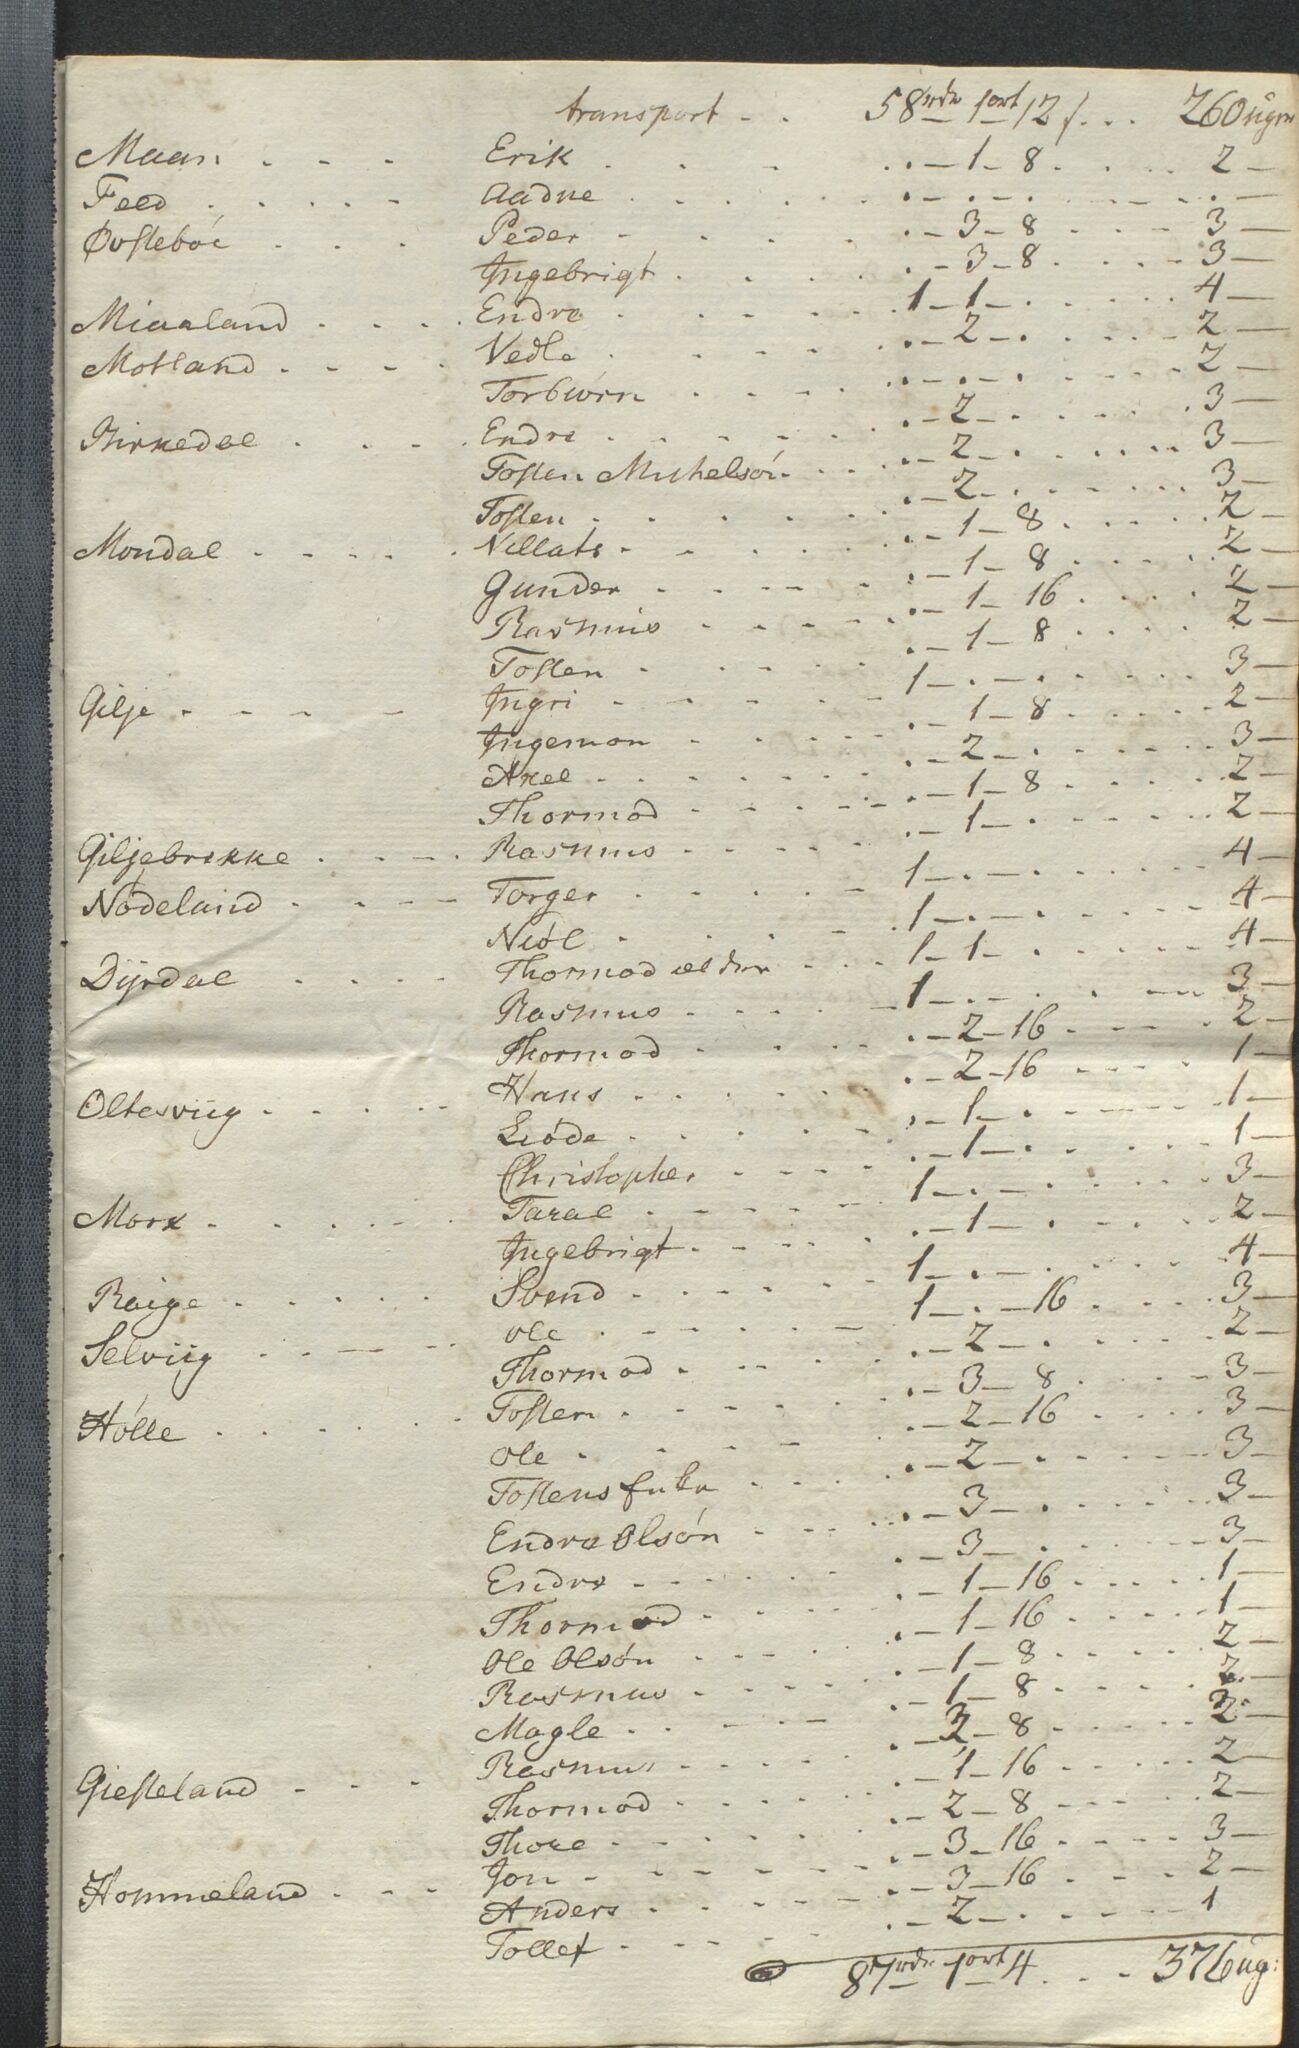 transport - . 58 rdr 1 ort 12 ſ. . . 260 ügrn
Maan . - - - Erik . . . . . - 1 - 8 . . . . 2 -
Feed . . . . - Aadne . . . . . - . - . . . . . . -
Øvstebøe . . . Peder - . . . . - 3 - 8 . . - - 3 -
Ingebrigt . . . . . - 3 - 8 . . . . 3 -
Miaaland . . . . Endre . . . . 1 - 1 - . . . . . 4 -
Motland . - - - Vedle . . . . . - 2 - . . . . . 2 -
Torbiørn . . . . . - . - . . . . . 2 -
Birkedal . . . . Endre . . . . . - 2 - . . . . . 3 -
Tosten Michelsøn . . . . - 2 - . . . . . 3 -
Tosten . . . . . - 2 - . . . . . 3 -
Mondal . - - - . Nillats - . . . . - 1 - 8 . . . . 2 -
Gunder . . . . . - 1 - 8 . . . . 2 -
Rasmus . . . . . - 1 - 16 . . . . 2 -
Tosten . . . . . - 1 - 8 . . . . 2 -
Gilje . - - - Ingri . . . . 1 - . - . . . . . 3 -
Ingemon . . . . . - 1 - 8 . . . . 2 -
Axel . . . . . - 2 - . . . . . 3 -
Thormod . . . . . - 1 - 8 . . . . 2 -
Giljebrekke . . . . Rasmus . . . . . - 1 - . . . . . 2 -
Nødeland . . . - Torger . . . . 1 - . - . . . . . 4 -
Niøl . . . . 1 - . - . . . . . 4 -
Dyrdal . . . . Thormod ælder . . . 1 - 1 - . . . . . 4 -
Rasmus . . . . 1 - . - . . . . . 3 -
Thormod . . . . . - 2 - 16 . . . . 2 -
Oltesviig . . . . . Hans . . . . . - 2 - 16 . . . . 1 -
Liøde . . . . . - 1 - . . . . . 1 -
Christopher . . . . . - 1 - . . . . . 1 -
Morx . . . . . Taral . . . . 1 - . - . . . . . 3 -
Ingebrigt . . . . . - 1 - . . . . . 2 -
Raige . . . . . Svend . . . . 1 - . - . . . . . 4 -
Selviig . . - - Ole . . . . 1 - . - 16 . . . . 3 -
Thormod . . . . . - 2 - . . . . . 2 -
Hølle . . . . . Tosten . . . . . - 3 - 8 . . . . 3 -
Ole . . . . . - 2 - 16 . . . . 3 -
Tostens Enke . . . . . - 2 - . . . . . 3 -
Endre Olsøn . . . . . - 3 - . . . . . 3 -
Endre . . . . . - 3 - . . . . . 3 -
Thormod . . . . . - 1 - 16 . . . . 1 -
Ole Olsøn . . . . . - 1 - 16 . . . . 1 -
Rasmus . . . . . - 1 - 8 . . . . 2 -
Magle . . . . . - 1 - 8 . . . . 2 -
Giesteland - - . Rasmus . . . . . - 8 . . . .
Thormod . . . . . - 1 - 16 . . . . 2 -
Thore . . . . . - 2 - 8 . . . . 2 -
Hommeland . . . Jon . . . . . - 3 - 16 . . . . 3 -
Anders . . . . . - 3 - 16 . . . . 2 -
Tollef . . . . . - 2 - . . . . . 1
87 rdr. 1 ort 4 . . . 376 üg: